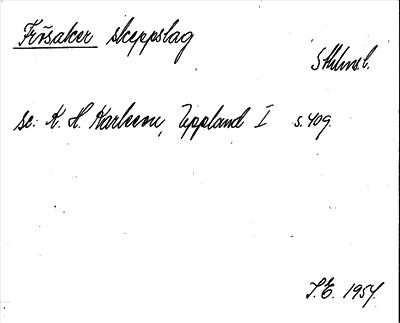 Frösaker skeppslag
Sthlms l.
se: K. H. Karlsson, Uppland I s. 409.
S.E. 1954.